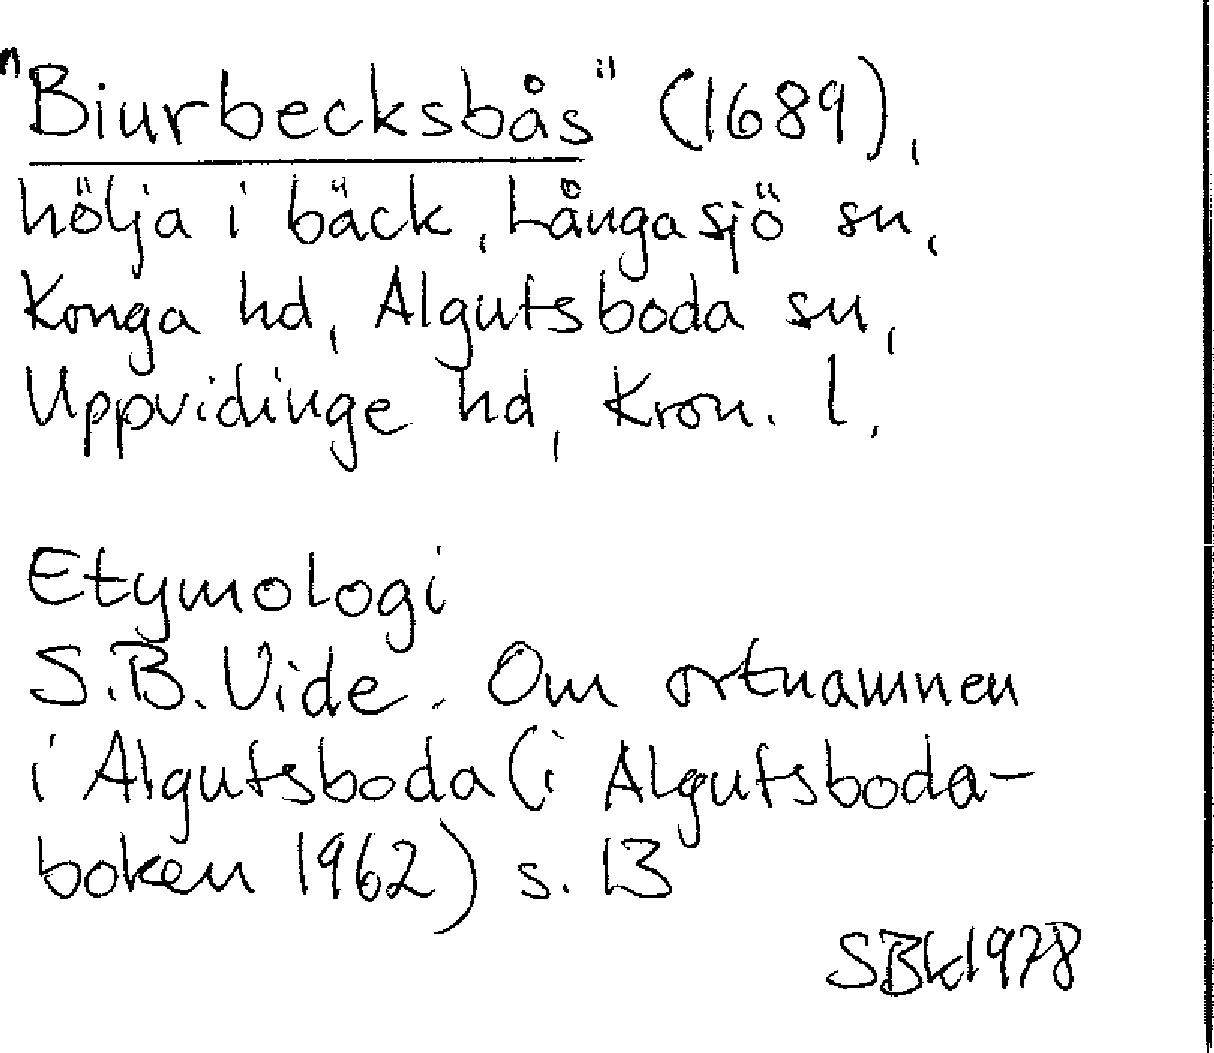 "Biurbecksbås" (1689),
hölja i bäck, Långasjö sn,
Konga hd, Algutsboda sn,
Uppvidinge hd, Kron. l.
Etymologi
S.B. Vide. Om ortnamnen
i Algutsboda (i Algutsboda-
boken 1962) s. 13
SBk 1978